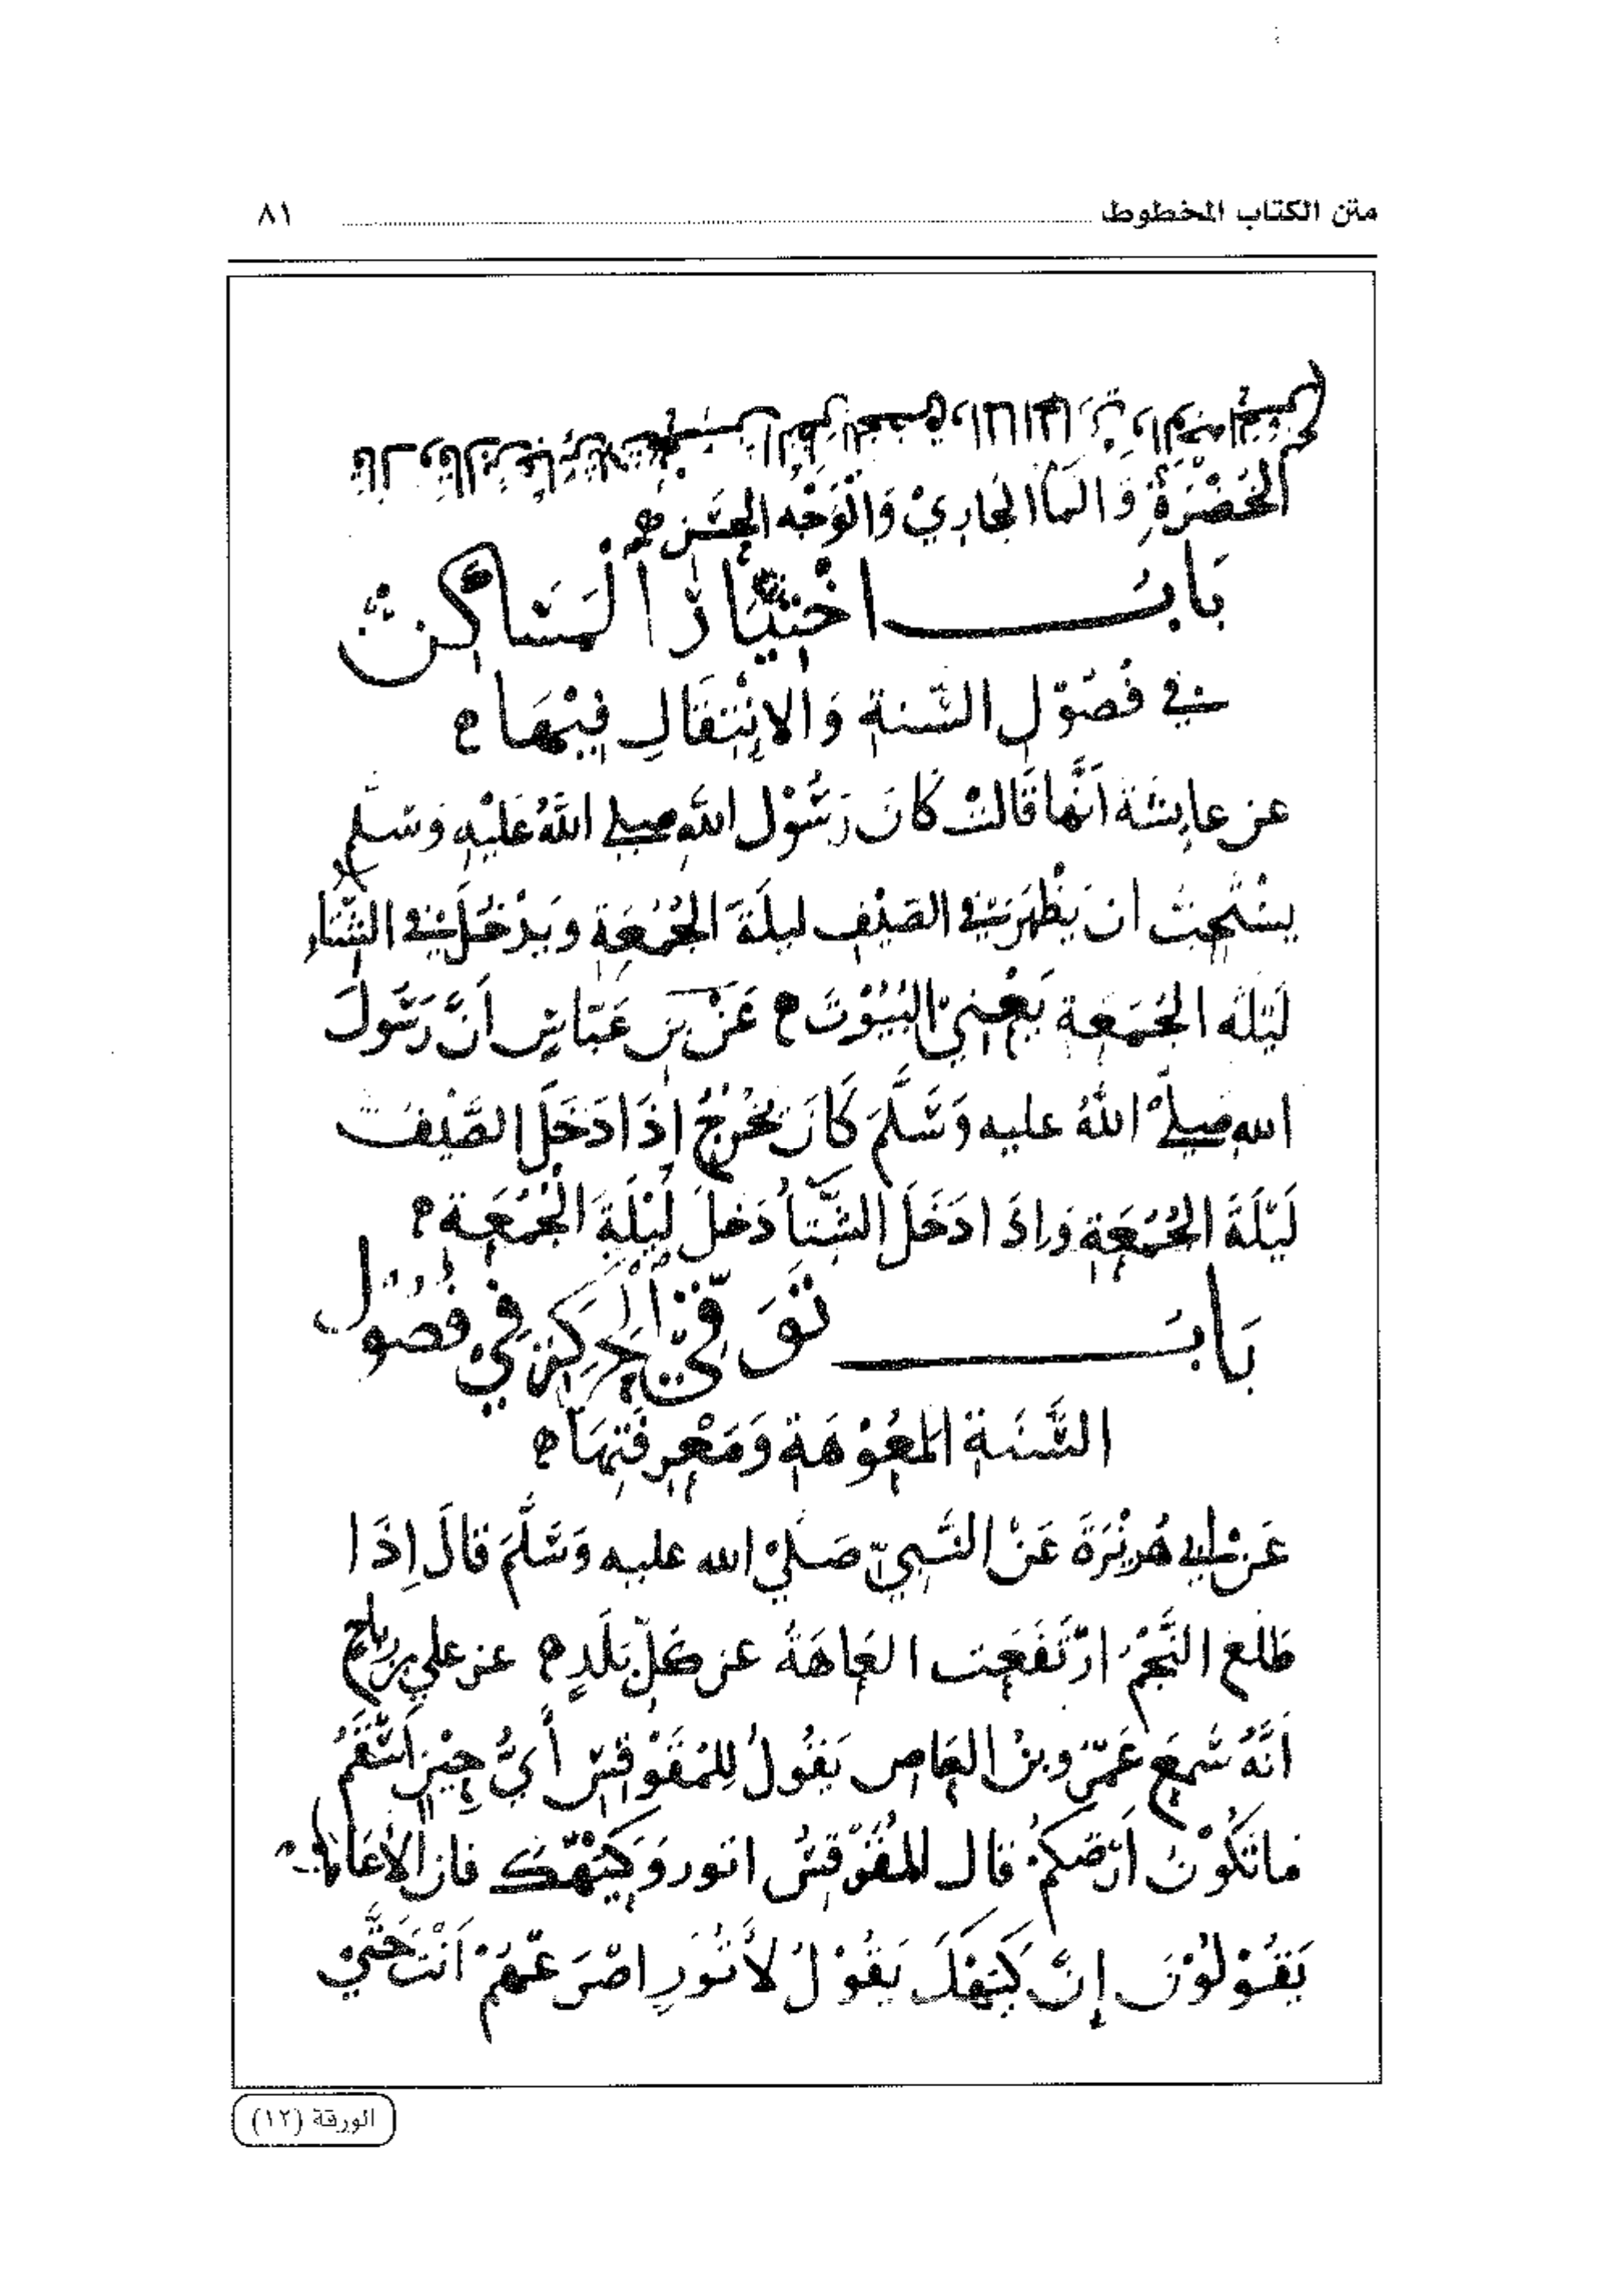 متن الكتاب المخطوط ٨١
الخُضْرَةِ وَالمَا الجَارِيْ وَالْوَجْهُ الحِسَن
بَابُ اخْتِيَارُ الْمَسَاكِن
في فُصُوْلِ السَّنةِ وَالاِنْتِقَالِ فِيْهَا
عن عايشَة اَنَّها قَالتْ كَانَ رَسُوْل اللهِ صلى اللهُ عَلَيْهِ وَسَلَّم
يسْتَحِبُّ ان يَظْهَرَ في الصَيْفِ ليلَةَ الجُمُعَةِ وَيَدْخُلَ في الشِّتَاءِ
لَيْلَةَ الجُمَعَةِ يَعْنِي البُيُوْتَ عَنْ بن عَبَّاسٍ اَنَّ رَسُولَ
الله صَلى اللهُ عليه وَسَلَّمَ كَانَ يخْرُجُ اِذَا دَخَلَ الصَّيْفُ
لَيْلَةَ الجُمُعَةِ وَاِذَا دَخَلَ الشِّتَأ دَخَلَ لَيْلَةَ الْجُمُعَةِ
بَابُ تَوَقِّيْ الْحَرَكَةِ فِيْ فُصُوْل
السَّنَةِ المعُوْهَةِ وَمَعْرِفَتِهَا
عَنْ ابي هُرَيْرَةَ عَنْ النَّبِيّ صَلَّيْ الله عليه وَسَلَّمَ قالَ اِذَا
طَلعَ النَّجْمُ ارْتَفَعَت العَاهَةُ عن كلِّ بَلَدٍ عن علي بن رباح
اَنَّهُ سَمِعَ عَمْرَو بنْ العَاص يَقُولُ لِلمُقَوْقِسِ أَيُّ حِيْنٍ اَسْقَمُ
ماتكُوْنُ اَرْضكُمْ قال المُقَوْقِسُ اتور وَكَيَهْك فان الأعَاجم
يَقُوْلُوْنَ إِنَّ كَيَهْكَ يَقُوْلُ لأَتُوْرِ اصْرَعْهُمْ اَنْتَ حَتَّي
الورقة (١٢)